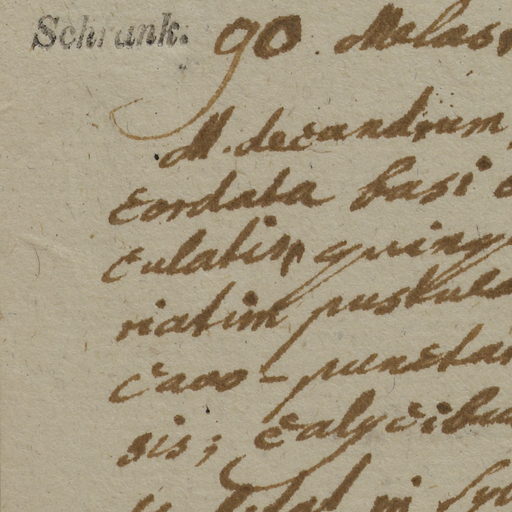 Schrank. 90. Melas
M. decandrum
cordata basi
culatis, quinq
riatim pustula
cavo-punctar
sis; calycibu